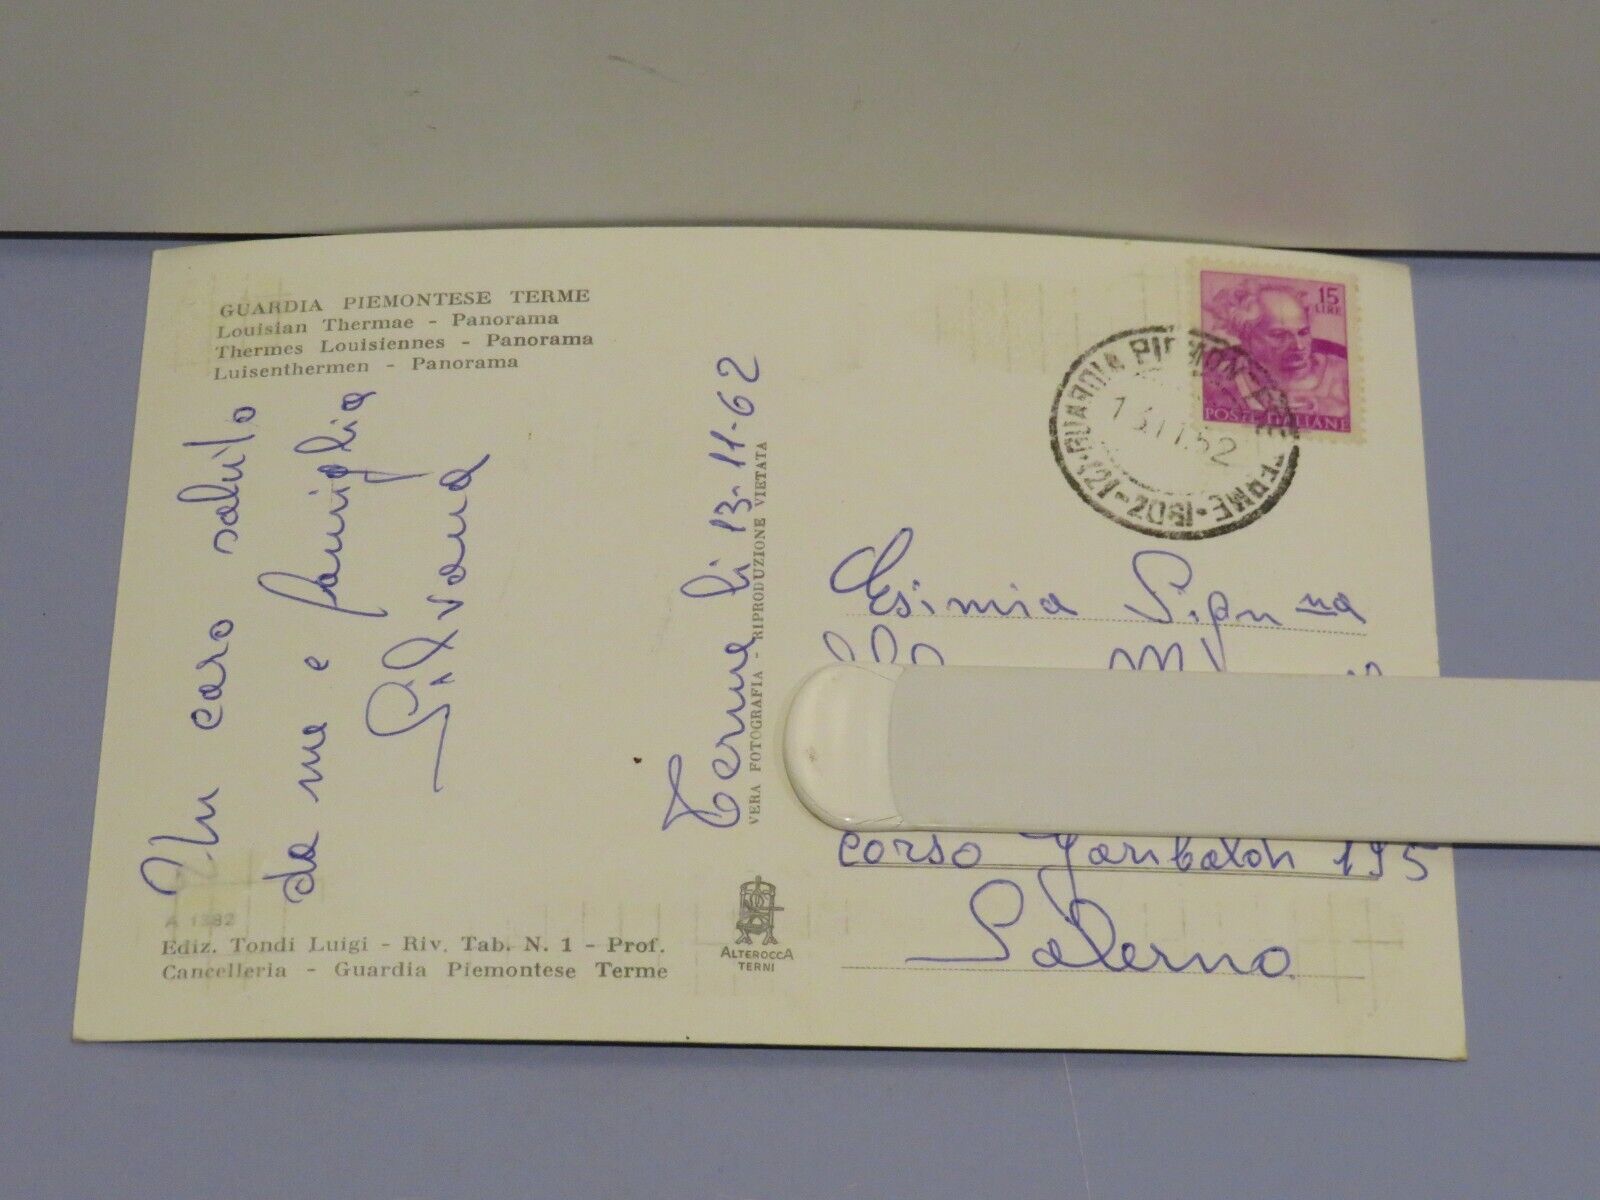 GUARDIA PIEMONTESE TERME
Louisian Thermae - Panorama
Thermes Louisiennes - Panorama
Luisenthermen - Panorama
Un caro saluto
da me e famiglia
Silvana
Terme li 13-11-62
VERA FOTOGRAFIA - RIPRODUZIONE VIETATA
A 1382
Ediz. Tondi Luigi - Riv. Tab. N. 1 - Prof.
Cancelleria - Guardia Piemontese Terme
ALTEROCCA
TERNI
15
LIRE
POSTE ITALIANE
GUARDIA PIEMONTESE TERME
13.11.62
Gesimia Sign na
corso Garibaldi 195
Salerno